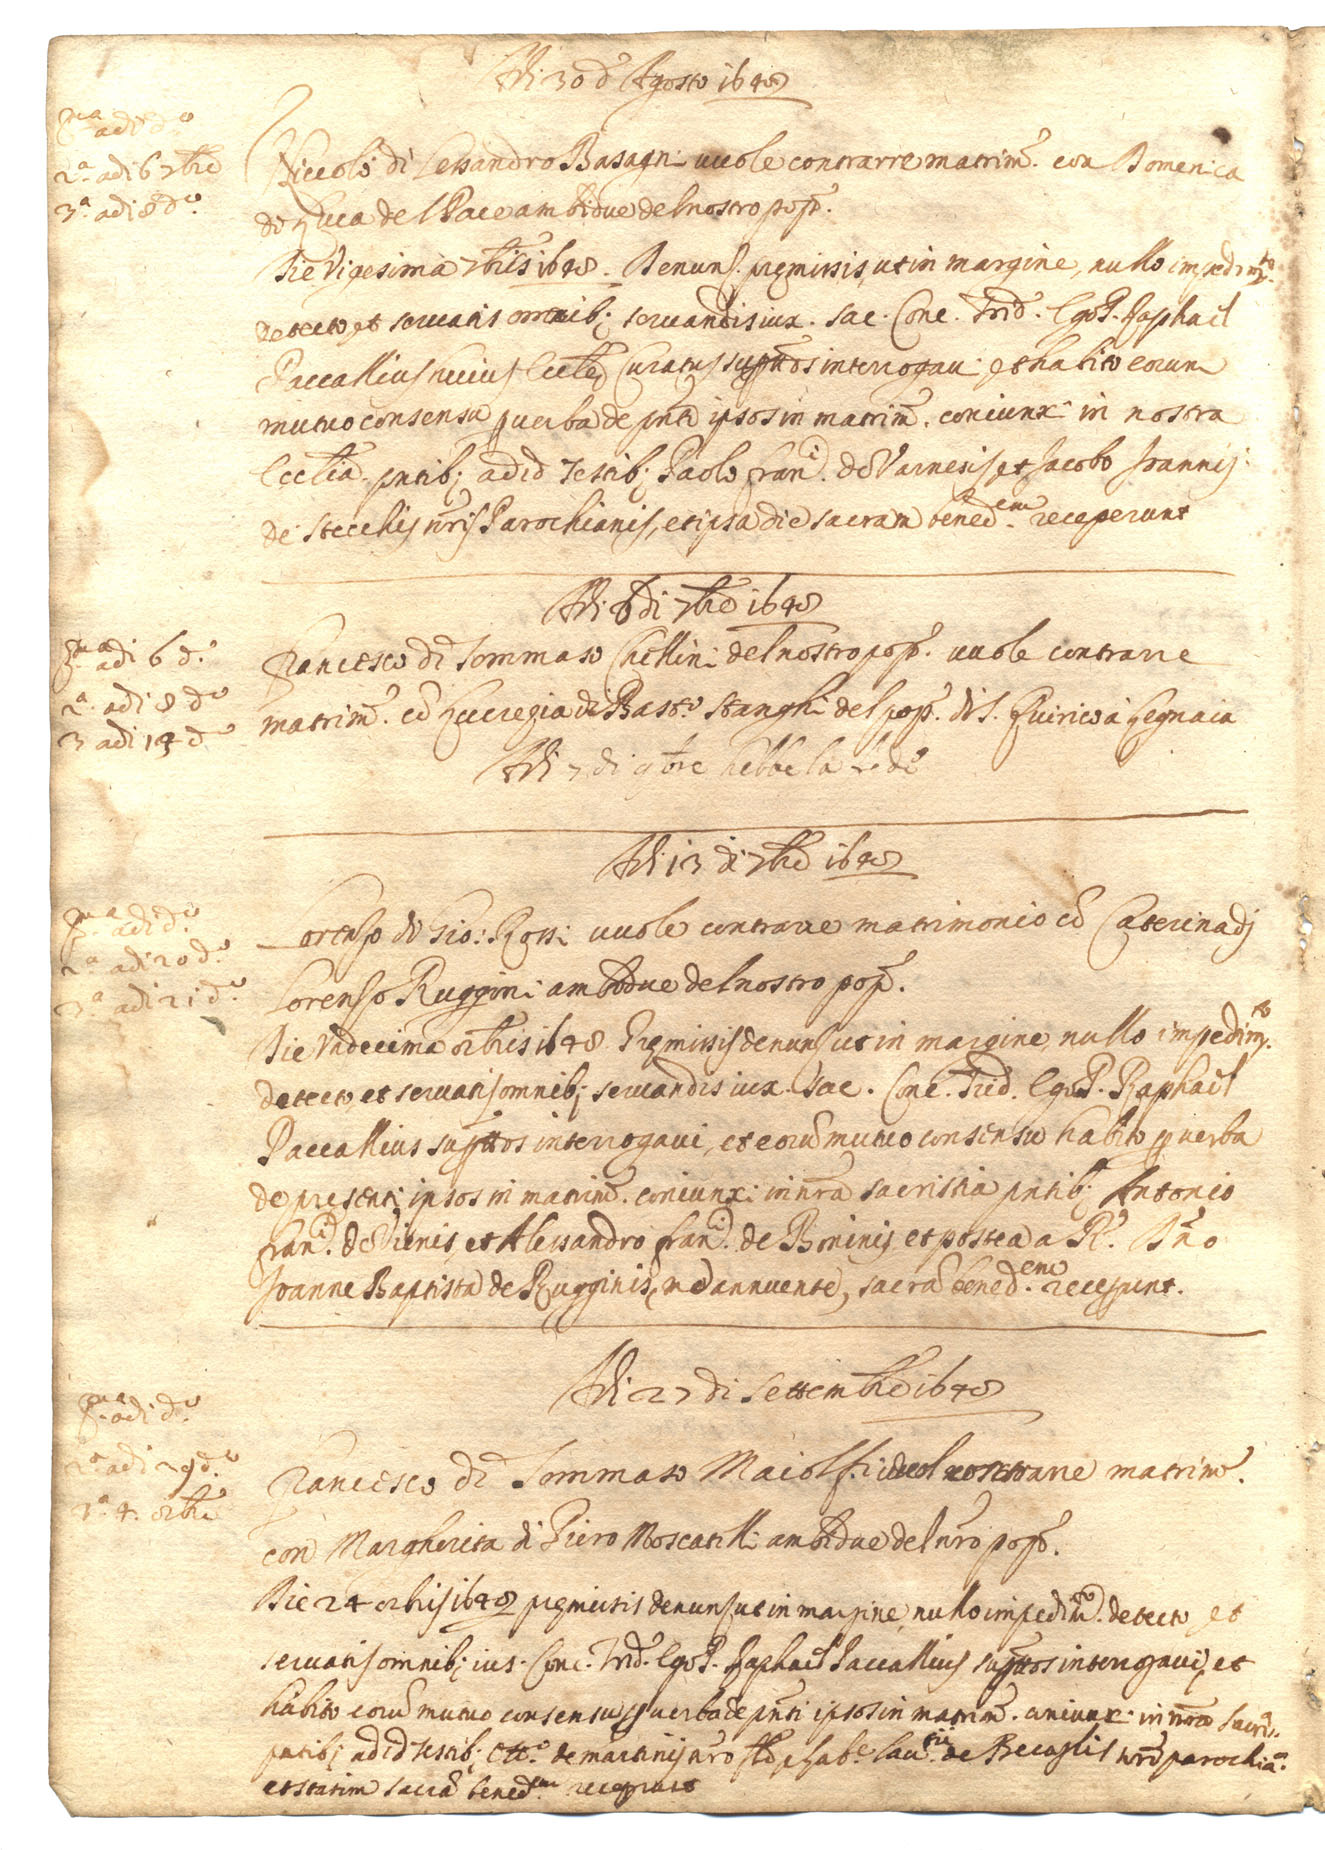 Adi 30 d'Agosto 1648
P.ma adi d.o
2.a adi 6 7bre
3.a adi 8 d.o
Niccolò di Lessandro Basagni vuole contrarre matrim.o con Domenica
di Luca del Pace ambidue del nostro pop.o
Die Vigesima 7bris 1648. Denunt. premissis, ut in margine, nullo impedim.to
detecto et servatis omnib; servandis iux. Sac. Conc. Trid. Ego P. Raphael
Paccallius huius Eccle Curatus supttos interrogavi et habito eorum
mutuo consensu p verba de pnti ipsos in matrim. coniunxi in nostra
Ecclia pntib; ad id Testib; Paolo Fran.ci de Varnesis et Jacobo Joannis
de Stecchis nris Parochianis, et ipsa die sacram bened.em receperunt
Adi 6 di 7bre 1648
P.ma adi 6 d.o
2.a adi 8 d.o
3 adi 14 d.o
Francesco di Tommaso Chellini del nostro pop. vuole contrarre
matrim. co Lucregia di Bast.o Stanghi del pop. di S. Quirico a Legnaia
Adi 7 di 9bre hebbe la fede
Adi 13 di 7bre 1648
P.ma adi d.o
2.a adi 20 d.o
3.a adi 21 d.o
Lorenso di Gio: Rossi vuole contrarre matrimonio co Caterina di
Lorenso Ruggini ambidue del nostro pop.
Die Undecima 8bris 1648 Premissis denuns ut in margine, nullo impedim.to
detecto, et servatis omnib; servandis iux. Sac. Conc. Trid. Ego P. Raphael
Paccallius supttos interrogavi, et eoru mutuo consensu habito p verba
de presenti ipsos in matrim. coniunxi in nra sacristia pntib; Antonio
Fran.ci de Vienis, et Alessandro Fran.ci de Bininis, et postea a R.
Joanne Baptista de Rugginis, me annuente, sacra bened.em recepunt.
Adi 27 di Settembre 1648
P.ma adi d.o
2.a adi 29 d.o
3.a 4. 8bre
Francesco di Tommaso Maiolfi vuol contrarre matrim.
con Margherita di Piero Moscatelli ambidue del nro pop.
Die 24 8bris 1648 premissis denuns ut in margine, nullo impedim.to detecto et
servatis omnib; ius. Conc. Trid. Ego P. Raphael Paccallius supttos interrogavi, et
habito eoru mutuo consensu p verba de pnti ipsos in matrim. coniunx. in nra Sacri.
pntib; ad id Testib; de Martinis nro de Becaglis nro parochia.
et statim sacra bened.em recepunt